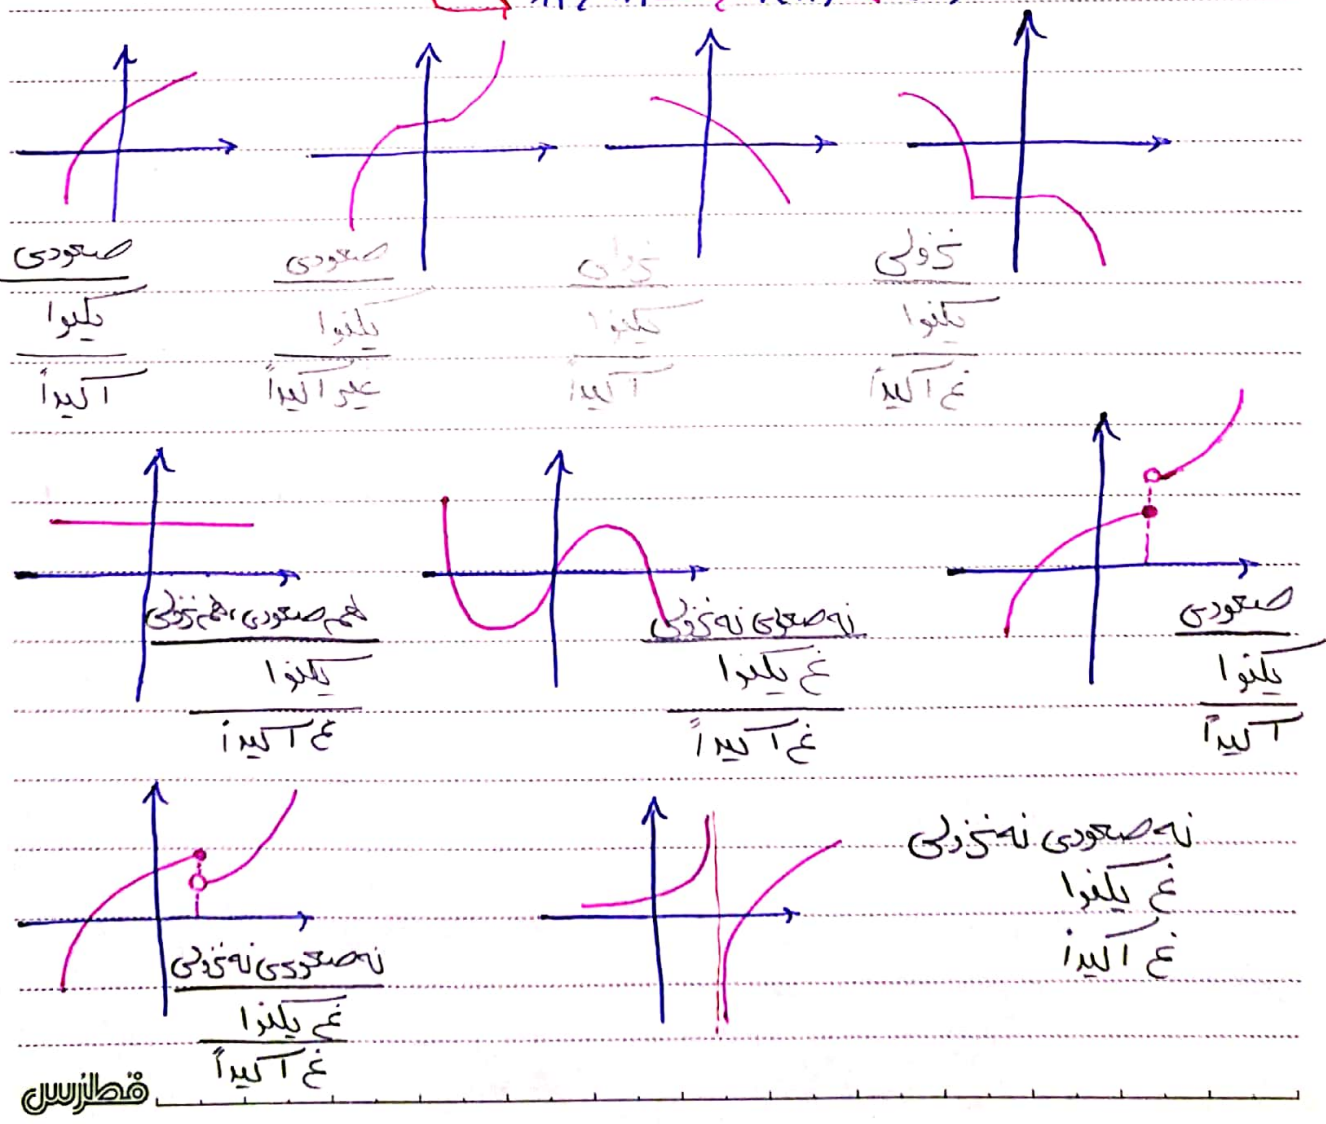 صعودی
یکنوا
اکیداً
صعودی
یکنوا
غیر اکیداً
نزولی
یکنوا
اکیداً
نزولی
یکنوا
غ اکیداً
هم صعودی، هم نزولی
یکنوا
غ اکیداً
نه صعودی نه نزولی
غ یکنوا
غ اکیداً
صعودی
یکنوا
اکیداً
نه صعودی نه نزولی
غ یکنوا
غ اکیداً
نه صعودی نه نزولی
غ یکنوا
غ اکیداً